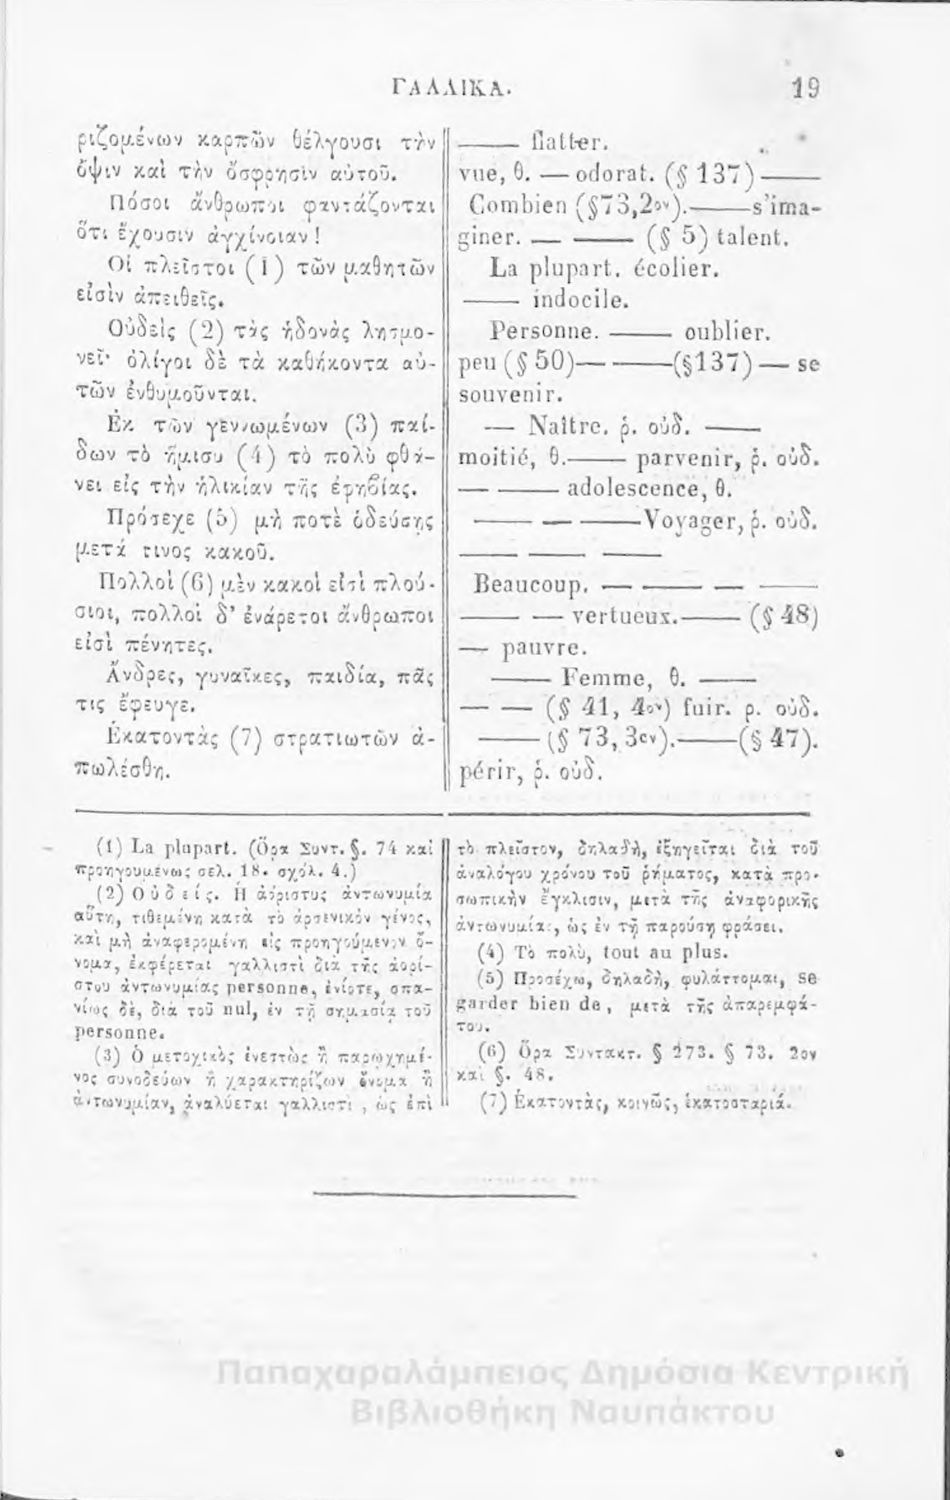 ΓΑΛΛΙΚΑ.
19
ριζομένων καρπῶν θέλγουσι τὴν
ὄψιν καὶ τὴν ὄσφρησίν αὐτοῦ.
Πόσοι ἄνθρωποι φαντάζονται
ὅτι ἔχουσιν ἀγχίνοιαν!
Οἱ πλεῖστοι (1) τῶν μαθητῶν
εἰσὶν ἀπειθεῖς.
Οὐδεὶς (2) τὰς ἡδονὰς λησμο-
νεῖ· ὀλίγοι δὲ τὰ καθήκοντα αὑ-
τῶν ἐνθυμοῦνται.
Ἐκ τῶν γεννωμένων (3) παί-
δων τὸ ἥμισυ (4) τὸ πολὺ φθά-
νει εἰς τὴν ἡλικίαν τῆς ἐφηβίας.
Πρόσεχε (5) μὴ ποτὲ ὁδεύσῃς
μετά τινος κακοῦ.
Πολλοὶ (6) μὲν κακοὶ εἰσὶ πλού-
σιοι, πολλοὶ δ' ἐνάρετοι ἄνθρωποι
εἰσὶ πένητες.
Ἄνδρες, γυναῖκες, παιδία, πᾶς
τις ἔφευγε.
Ἑκατοντὰς (7) στρατιωτῶν ἀ-
πωλέσθη.
—— flatter.
vue, θ. — odorat. (§ 137)——
Combien (§73,2ον).——s'ima-
giner. — —— (§ 5) talent.
La plupart. écolier.
—— indocile.
Personne. —— oublier.
peu (§ 50)— ——(§137) — se
souvenir.
— Naître. ῥ. οὐδ. ——
moitié, θ.—— parvenir, ῥ. οὐδ.
— —— adolescence, θ.
—— — ——Voyager, ῥ. οὐδ.
—— —— ——
Beaucoup. — —— — ——
—— — vertueux.—— (§ 48)
— pauvre.
—— Femme, θ. ——
— — (§ 41, 4ον) fuir. ρ. οὐδ.
——(§ 73, 3ον).——(§ 47).
périr, ῥ. οὐδ.
(1) La plupart. (Ὅρα Συντ. §. 74 καὶ
προηγουμένως σελ. 18. σχόλ. 4.)
(2) Οὐδείς. Ἡ ἀόριστος ἀντωνυμία
αὕτη, τιθεμένη κατὰ τὸ ἀρσενικὸν γένος,
καὶ μὴ ἀναφερομένη εἰς προηγούμενον ὄ-
νομα, ἐκφέρεται γαλλιστὶ διὰ τῆς ἀορί-
στου ἀντωνυμίας personne, ἐνίοτε, σπα-
νίως δὲ, διὰ τοῦ nul, ἐν τῇ σημασίᾳ τοῦ
personne.
(3) Ὁ μετοχικὸς ἐνεστὼς ἢ παρῳχημέ-
νος συνοδεύων ἢ χαρακτηρίζων ὄνομα ἢ
ἀντωνυμίαν, ἀναλύεται γαλλιστὶ , ὡς ἐπὶ
τὸ πλεῖστον, δηλαδὴ, ἐξηγεῖται διὰ τοῦ
ἀναλόγου χρόνου τοῦ ῥήματος, κατὰ προ-
σωπικὴν ἔγκλισιν, μετὰ τῆς ἀναφορικῆς
ἀντωνυμίας, ὡς ἐν τῇ παρούσῃ φράσει.
(4) Τὸ πολὺ, tout au plus.
(5) Προσέχω, δηλαδὴ, φυλάττομαι, se
garder bien de, μετὰ τῆς ἀπαρεμφά-
του.
(6) Ὅρα Συντακτ. § 273. § 73. 2ον
καὶ §. 48.
(7) Ἑκατοντὰς, κοινῶς, ἑκατοσταριά.
Παπαχαραλάμπειος Δημόσια Κεντρική
Βιβλιοθήκη Ναυπάκτου